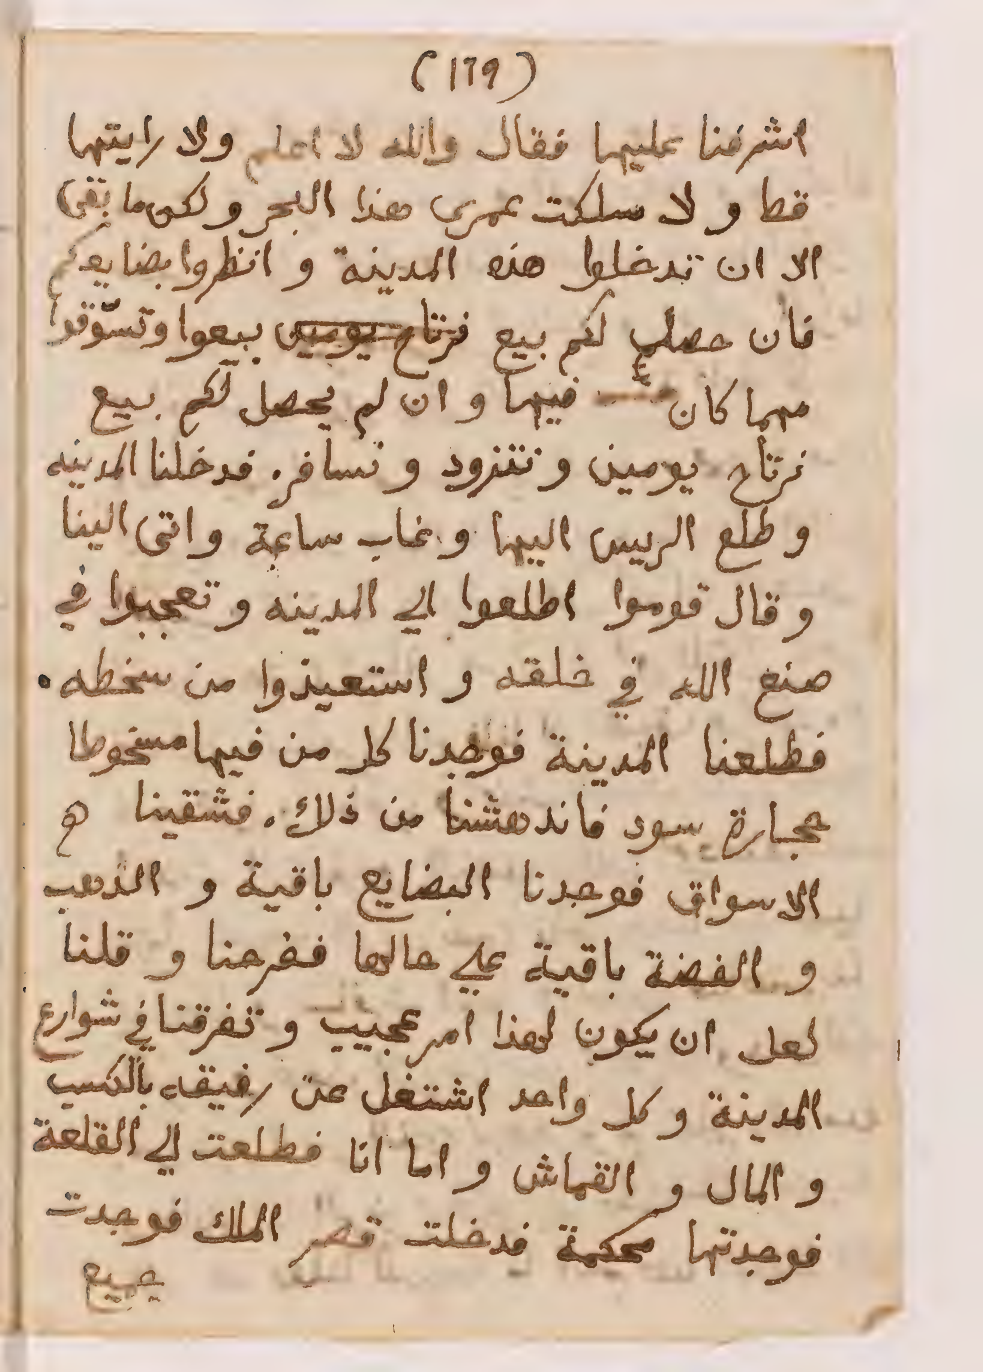 (١٦٩)
اشرفنا عليها فقال والله لا اعلم ولا رايتها
قط و لا سلكت عمرى هذا البحر و لكن ما بقى
الا ان تدخلوا هذه المدينة و انظروا بضايعكم
فان حصل لكم بيع نرتاح يومين بيعوا وتسوّقوا
مهما كان فيها و ان لم يحصل لكم بيع
نرتاح يومين و نتزود و نسافر. فدخلنا المدينه
و طلع الريس اليها و غاب ساعة و اتى الينا
و قال قوموا اطلعوا الي المدينه و تعجبوا في
صنع الله في خلقه و استعيذوا من سخطه.
فطلعنا المدينة فوجدنا كل من فيها مسخوطا
حجارة سود فاندهشنا من ذلك. فشقينا
الاسواق فوجدنا البضايع باقية و الذهب
و الفضة باقية علي حالها ففرحنا و قلنا
لعل ان يكون لهذا امر عجيب و تفرقنا في شوارع
المدينة و كل واحد اشتغل عن رفيقه بالكسب
و المال و القماش و اما انا فطلعت الي القلعة
فوجدتها محكمة فدخلت قصر الملك فوجدت
جميع